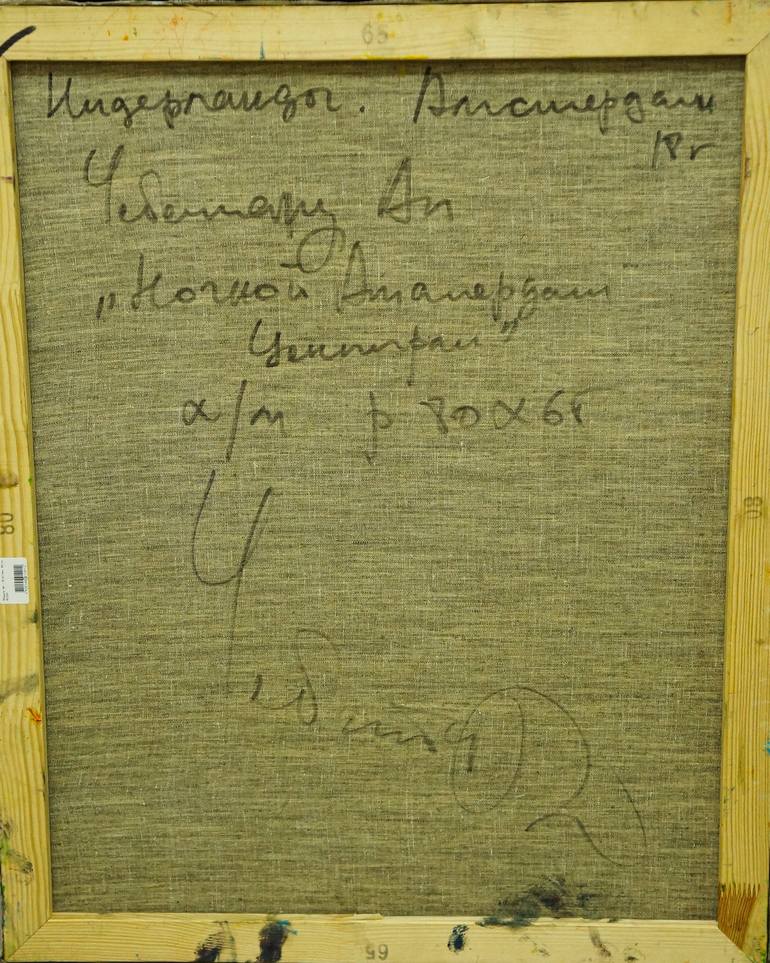 65
Нидерланды. Амстердам
18 г
Чеботару Ан
„Ночной Амстердам
Централ”
х/м р 80 х 65
80
80
65